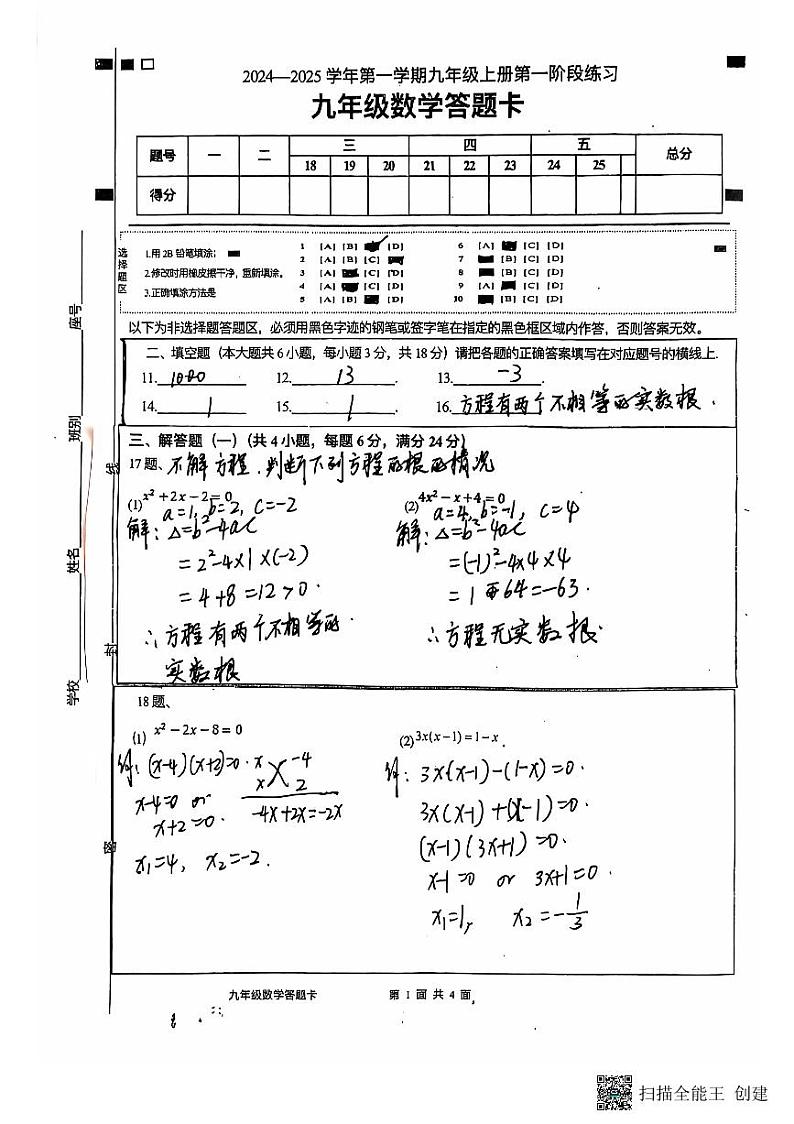 2024—2025 学年第一学期九年级上册第一阶段练习
九年级数学答题卡
题号 一 二 三 四 五 总分
18 19 20 21 22 23 24 25
得分
选择题区
1.用 2B 铅笔填涂;
2.修改时用橡皮擦干净,重新填涂。
3.正确填涂方法是
1 [A] [B] [D]
2 [A] [B] [C]
3 [A] [C] [D]
4 [A] [C] [D]
5 [A] [B] [D]
6 [A] [C] [D]
7 [B] [C] [D]
8 [B] [C] [D]
9 [A] [C] [D]
10 [B] [C] [D]
以下为非选择题答题区,必须用黑色字迹的钢笔或签字笔在指定的黑色框区域内作答,否则答案无效。
二、填空题(本大题共 6 小题,每小题 3 分,共 18 分)请把各题的正确答案填写在对应题号的横线上.
11. 1000 12. 13. 13. -3.
14. 1 15. 1. 16. 方程有两个不相等的实数根.
三、解答题(一)(共 4 小题,每题 6 分,满分 24 分)
17 题、不解方程,判断下列方程的根的情况
(1) x²+2x-2=0
a=1, b=2, c=-2
解:△=b²-4ac
=2²-4×1×(-2)
=4+8=12>0.
∴方程有两个不相等的
实数根
(2) 4x²-x+4=0
a=4, b=-1, c=4
解:△=b²-4ac
=(-1)²-4×4×4
=1-64=-63.
∴方程无实数根.
18 题、
(1) x²-2x-8=0
解:(x-4)(x+2)=0.
x -4
x 2
-4x+2x=-2x
x-4=0 or
x+2=0.
x₁=4, x₂=-2.
(2) 3x(x-1)=1-x.
解:3x(x-1)-(1-x)=0.
3x(x-1)+(x-1)=0.
(x-1)(3x+1)=0.
x-1=0 or 3x+1=0.
x₁=1, x₂=-1/3
学校 姓名 班别 座号
密 封 线
九年级数学答题卡 第 1 面 共 4 面
扫描全能王 创建